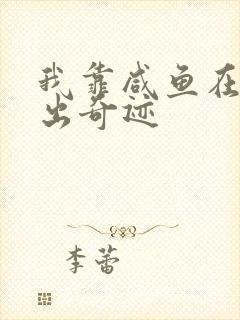 我靠咸鱼在
出奇迹
李蕾